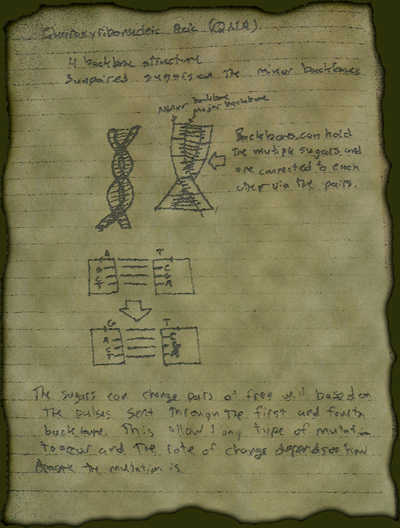 (QNA).
4 backbone structure
sugars on the minor backbones
Minor backbone
major backbone
Backbones can hold
the multiple sugars and
are connected to each
other via the pairs.
A T
G T
The sugars can change pairs at free will based on
the pulses sent through the first and fourth
backbone. This allows any type of mutation
to occur and the rate of change depends on how
the mutation is